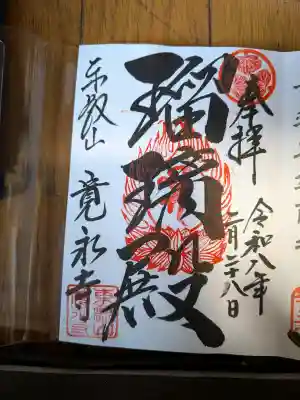 奉拝
令和八年
二月二十八日
瑠璃殿
東叡山
寛永寺